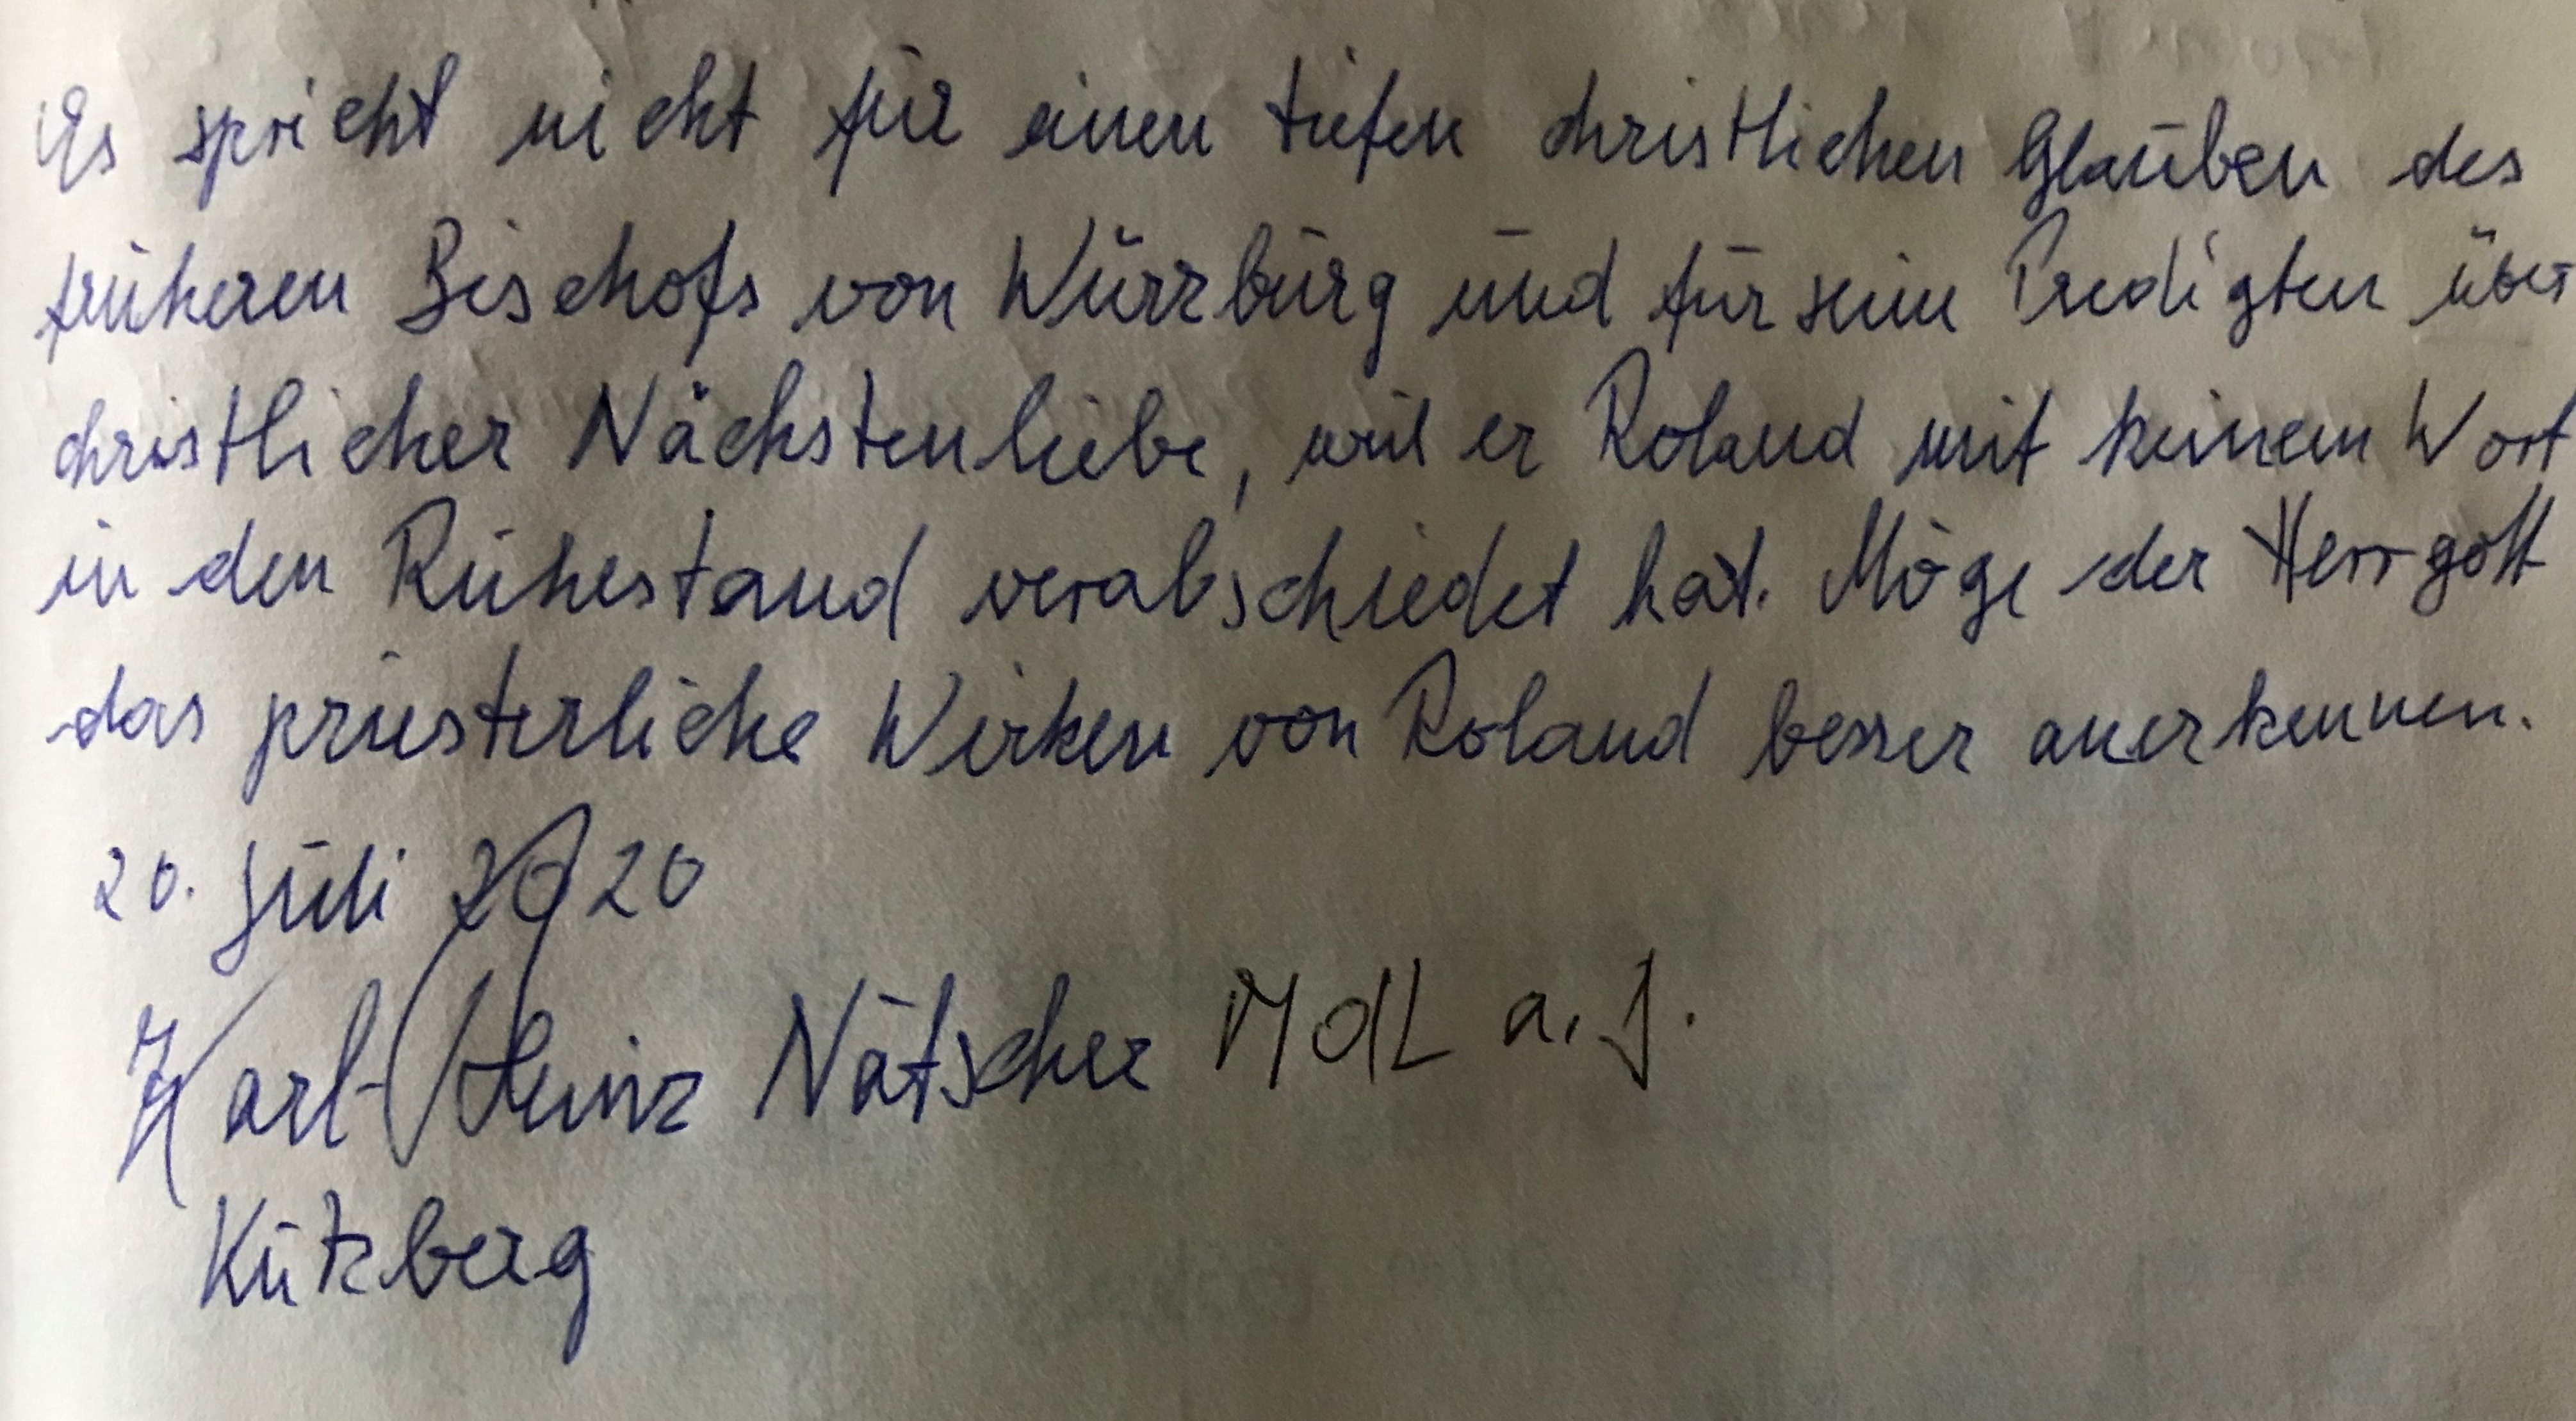 Es spricht nicht für einen tiefen christlichen Glauben des
früheren Bischofs von Würzburg und für seine Predigten über
christlicher Nächstenliebe, weil er Roland mit keinem Wort
in den Ruhestand verabschiedet hat. Möge der Herrgott
das priesterliche Wirken von Roland besser anerkennen.
20. Juli 2020
Karl-Heinz Nätscher MdL a.
Kützberg